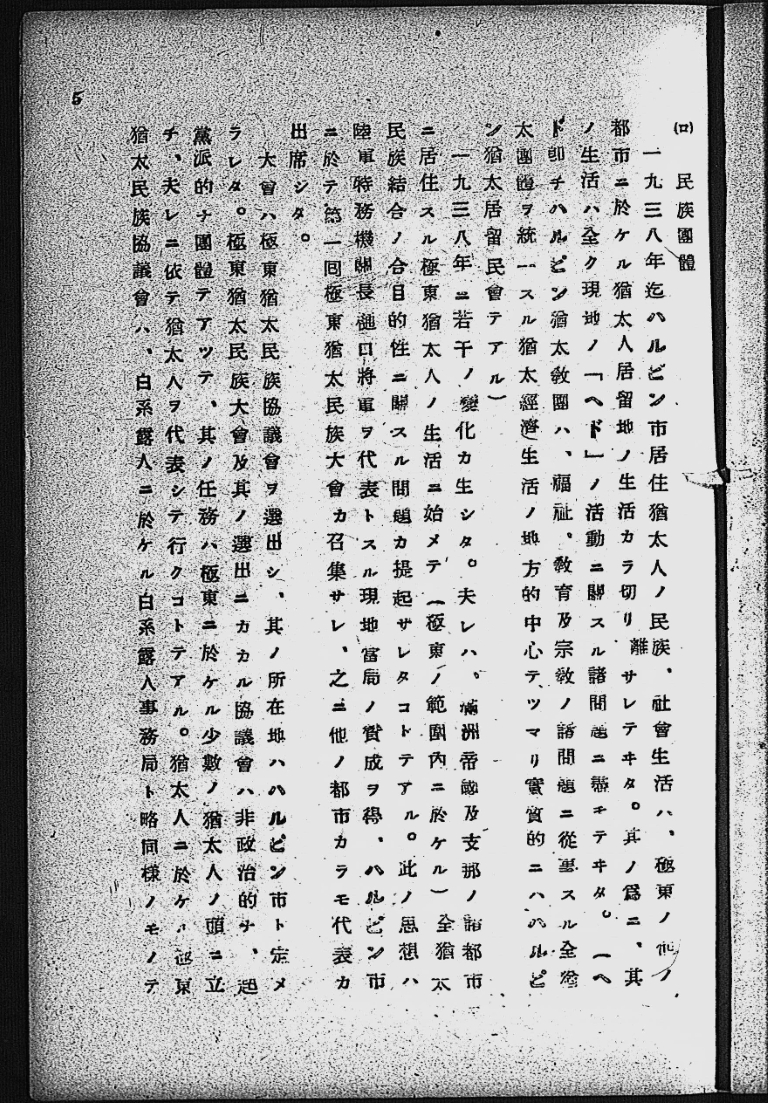 5
(ロ) 民族團體
一九三八年迄ハルビン市居住猶太人ノ民族、社會生活ハ、極東ノ他ノ
都市ニ於ケル猶太人居留地ノ生活カラ切リ離サレテヰタ。其ノ爲ニ、其
ノ生活ハ全ク現地ノ「ヘド」ノ活動ニ關スル諸問題ニ盡キテヰタ。(ヘ
ド卽チハルビン猶太敎團ハ、福祉、敎育及宗敎ノ諸問題ニ從事スル全猶
太團體ヲ統一スル猶太經濟生活ノ地方的中心テ、ツマリ實質的ニハハルビ
ン猶太居留民會テアル)
一九三八年ニ若干ノ變化カ生シタ。夫レハ、滿洲帝國及支那ノ諸都市
ニ居住スル極東猶太人ノ生活ニ始メテ(極東ノ範圍內ニ於ケル)全猶太
民族結合ノ合目的性ニ關スル問題カ提起サレタコトテアル。此ノ思想ハ
陸軍特務機關長樋口將軍ヲ代表トスル現地當局ノ賛成ヲ得、ハルビン市
ニ於テ第一回極東猶太民族大會カ召集サレ、之ニ他ノ都市カラモ代表カ
出席シタ。
大會ハ極東猶太民族協議會ヲ選出シ、其ノ所在地ハハルビン市ト定メ
ラレタ。極東猶太民族大會及其ノ選出ニカカル協議會ハ非政治的ナ、超
黨派的ナ團體テアツテ、其ノ任務ハ極東ニ於ケル少數ノ猶太人ノ頭ニ立
チ、夫レニ依テ猶太人ヲ代表シテ行クコトテアル。猶太人ニ於ケル極東
猶太民族協議會ハ、白系露人ニ於ケル白系露人事務局ト略同樣ノモノテ